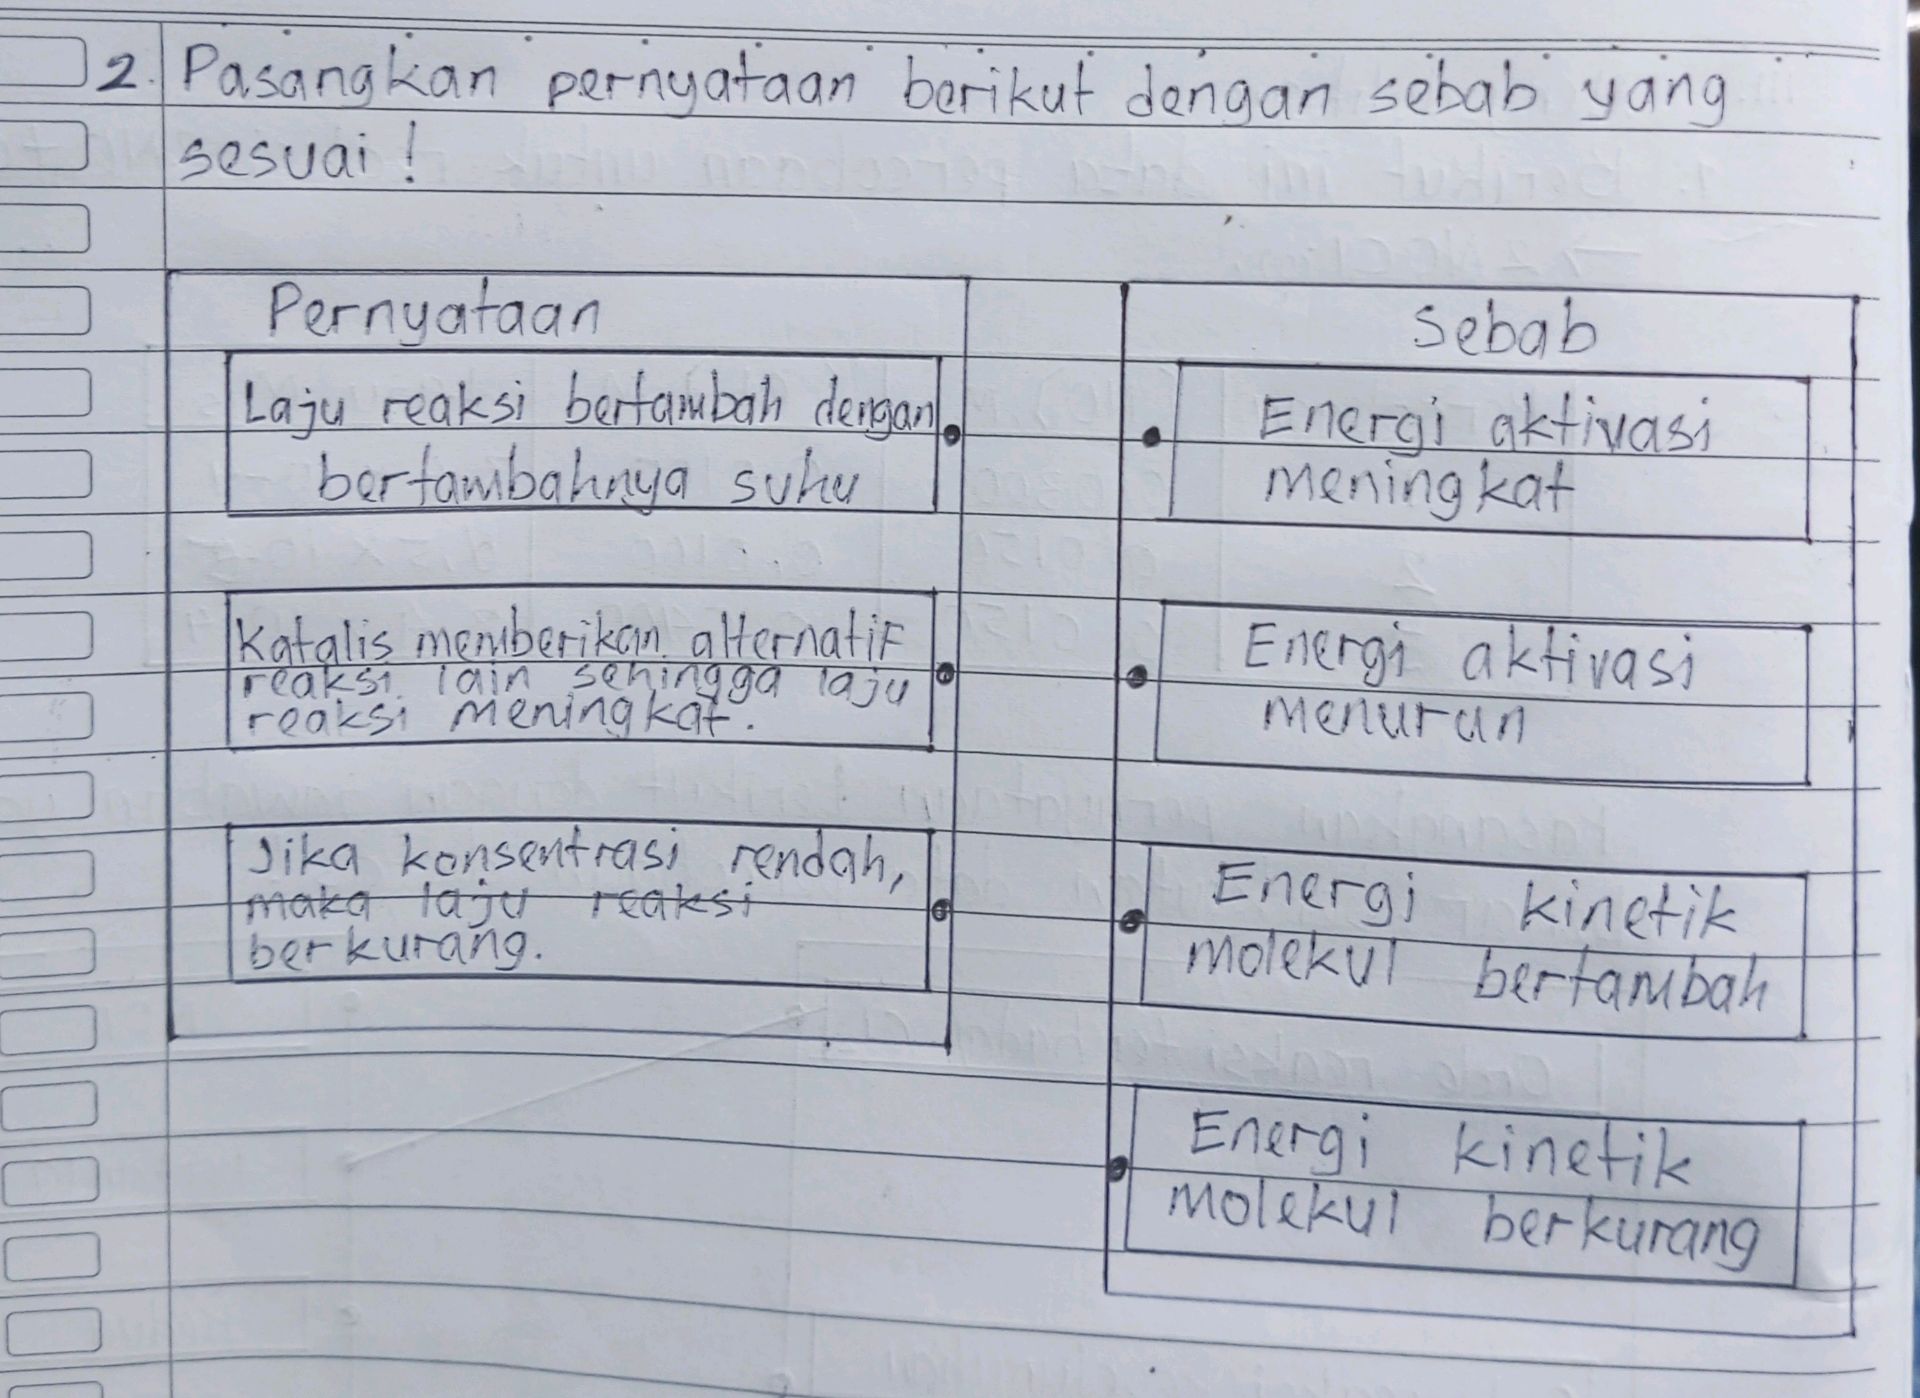 2. Pasangkan pernyataan berikut dengan sebab yang
sesuai !
Pernyataan
Laju reaksi bertambah dengan
bertambahnya suhu
Katalis memberikan alternatif
reaksi lain sehingga laju
reaksi meningkat.
Jika konsentrasi rendah,
maka laju reaksi
berkurang.
Sebab
Energi aktivasi
meningkat
Energi aktivasi
menurun
Energi kinetik
molekul bertambah
Energi kinetik
molekul berkurang